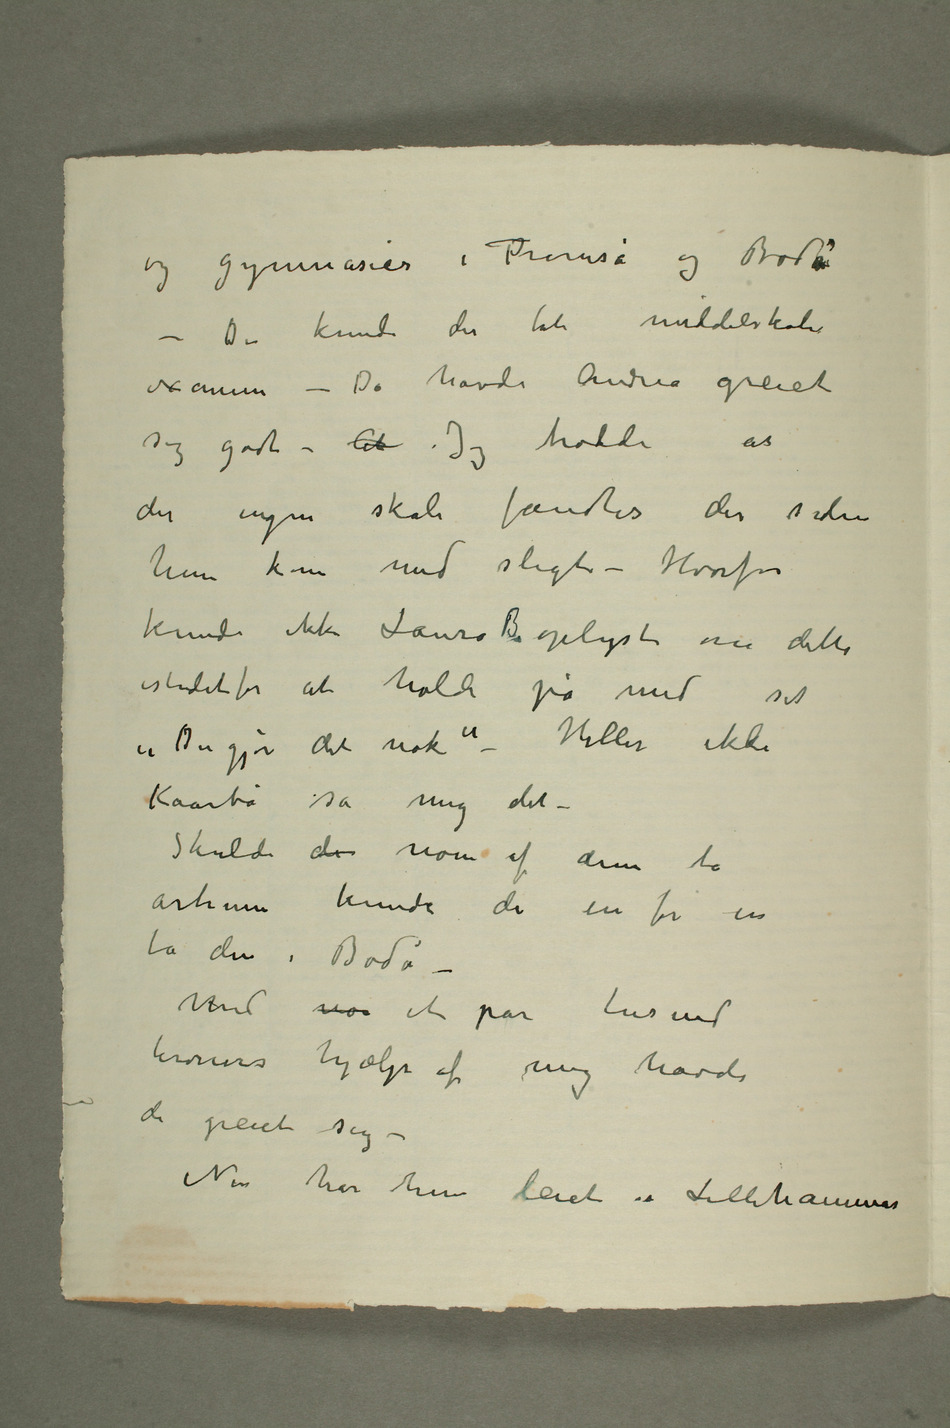 og gymnasier i Tromsø og Bodø
– De kunde der tat middelskole
examen – Da havde Andrea greiet
sig godt – At Jeg trodde at
der ingen skole fandtes der siden
hun kom med sligt – Hvorfor
kunde ikke Laura B oplyst om dette
istedetfor at holde på med sit
„Du gjør det nok“ – Heller ikke
Kaarbø sa mig det –
Skulde de noen af dem ta
artium kunde de en for en
ta den i Bodø –
Med no et par tusend
kroners hjælp af mig havde
de greiet sig –
Nu har hun leiet i Lillehammer